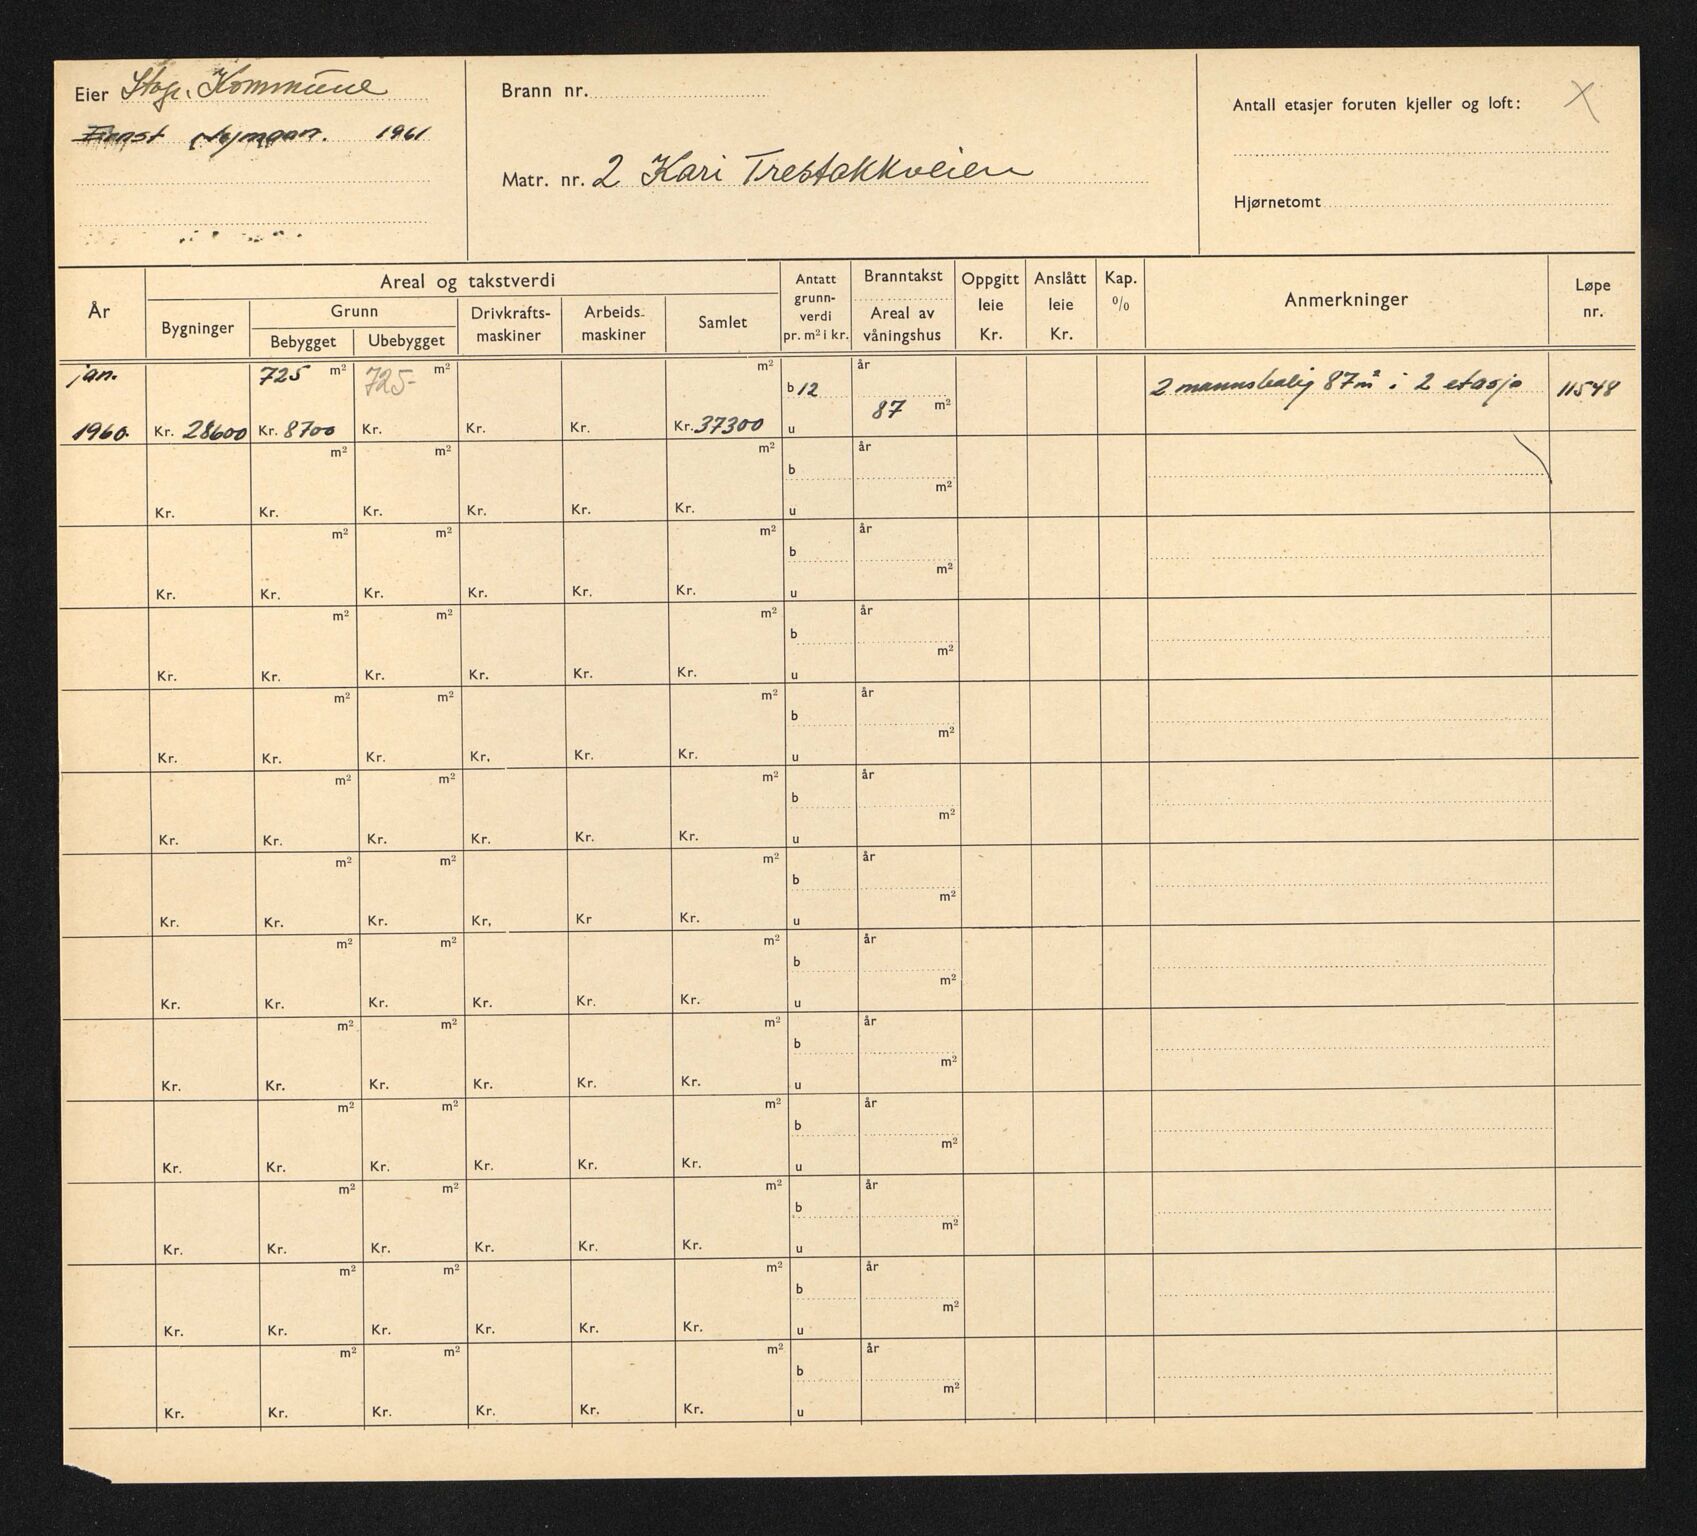 Eier Stvgr. Kommune
Ernst Nyman. 1961
Brann nr.
Matr. nr. 2 Kari Trestakkveien
Antall etasjer foruten kjeller og loft: X
Hjørnetomt
År
Areal og takstverdi
Bygninger
Grunn
Bebygget Ubebygget
Drivkrafts-
maskiner
Arbeids-
maskiner
Samlet
Antatt
grunn-
verdi
pr. m² i kr.
Branntakst
Areal av
våningshus
Oppgitt
leie
Kr.
Anslått
leie
Kr.
Kap.
%
Anmerkninger
Løpe
nr.
jan. 725 m² 725- m² m² b 12 år 2 mannsbolig 87 m² i 2 etasje 11548
87 m²
1960. Kr. 28600 Kr. 8700 Kr. Kr. Kr. Kr. 37300 u
m² m² m² år
b
m²
Kr. Kr. Kr. Kr. Kr. Kr. u
m² m² m² år
b
m²
Kr. Kr. Kr. Kr. Kr. Kr. u
m² m² m² år
b
m²
Kr. Kr. Kr. Kr. Kr. Kr. u
m² m² m² år
b
m²
Kr. Kr. Kr. Kr. Kr. Kr. u
m² m² m² år
b
m²
Kr. Kr. Kr. Kr. Kr. Kr. u
m² m² m² år
b
m²
Kr. Kr. Kr. Kr. Kr Kr. u
m² m² m² år
b
m²
Kr. Kr. Kr. Kr. Kr. Kr. u
m² m² m² år
b
m²
Kr. Kr. Kr. Kr. Kr. Kr. u
m² m² m² år
b
m²
Kr. Kr. Kr. Kr. Kr. Kr. u
m² m² m² år
b
m²
Kr. Kr. Kr. Kr. Kr. Kr. u
m² m² m² år
b
m²
Kr. Kr. Kr. Kr. Kr. Kr. u
m² m² m² år
b
m²
Kr. Kr. Kr. Kr. Kr. Kr. u